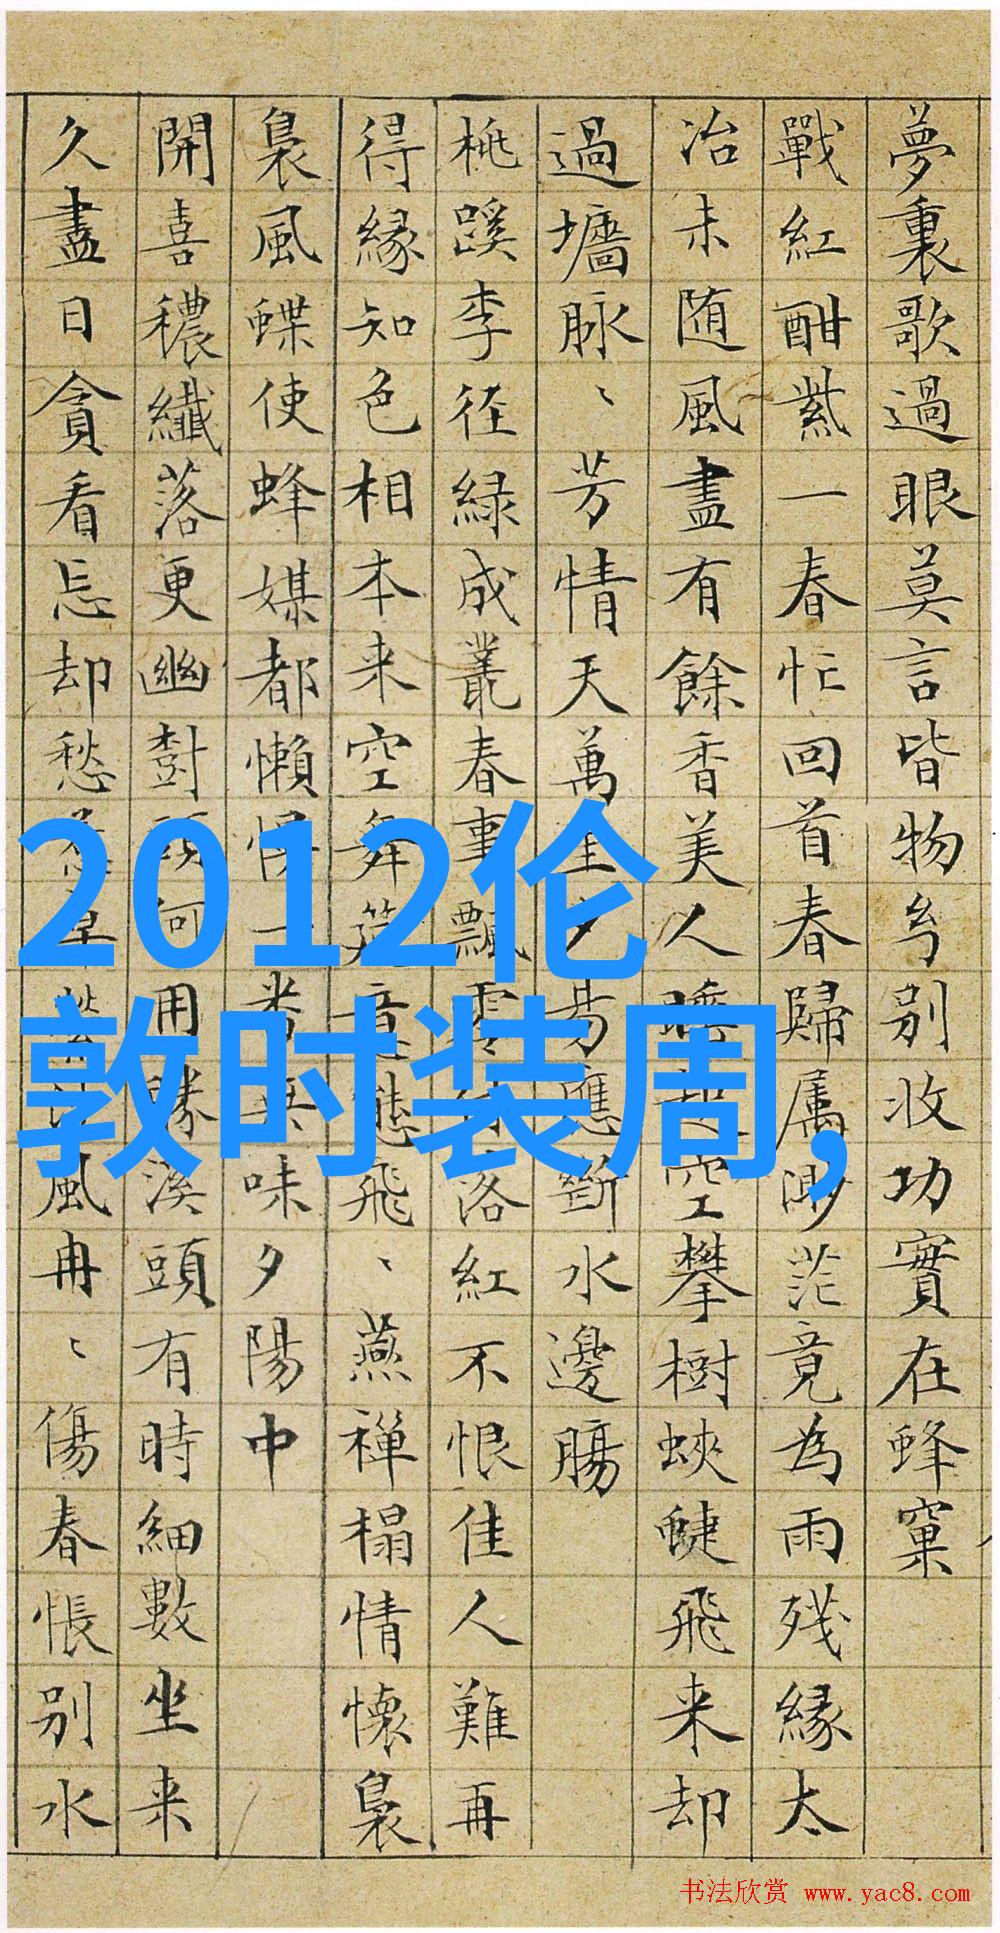 夢裏歌過眼莫言皆物兮别收功實在蜂窠
戰紅酣紫一春忙回首春歸属渺茫竟為雨残緣太
冶未随風盡有餘香美人睡起空攀樹蛺蜨飛来却
過墻脉、芳情天萬里夕昜應斷水邊腸
桃蹊李径緑成叢春事飄零付落紅不恨佳人難再
得緣知色相本来空舞筵意態飛、燕禅榻情懷裊
裊風蝶使蜂媒都懶慢一番無味夕陽中
開喜穠纖落更幽樹頭何用勝溪頭有時細數坐来
久盡日貪看忘却愁風冉、傷春悵别水
2012伦
敦时装周,
书法欣赏 www.yac8.com